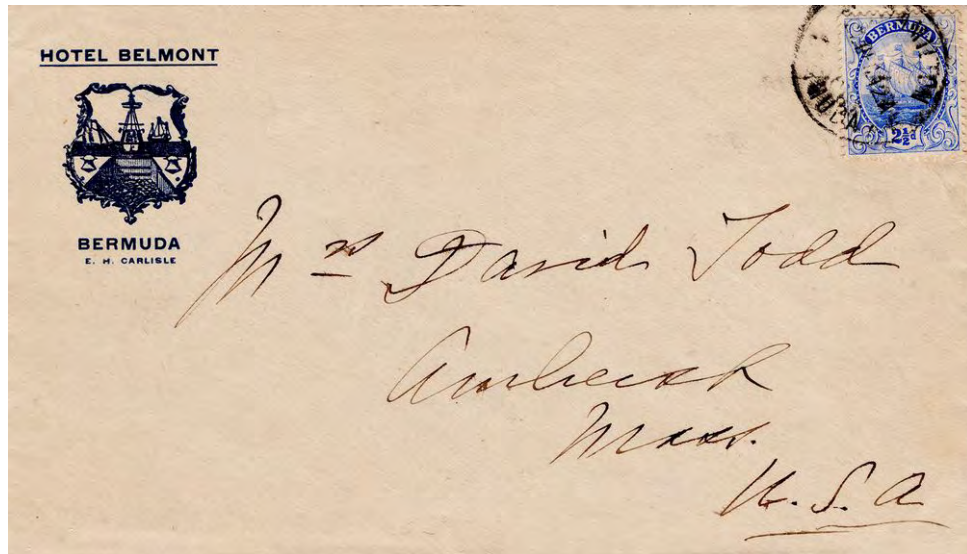 HOTEL BELMONT
BERMUDA
E. H. CARLISLE
BERMUDA
2½d
Mrs David Todd
Amherst
Mass.
U.S.A